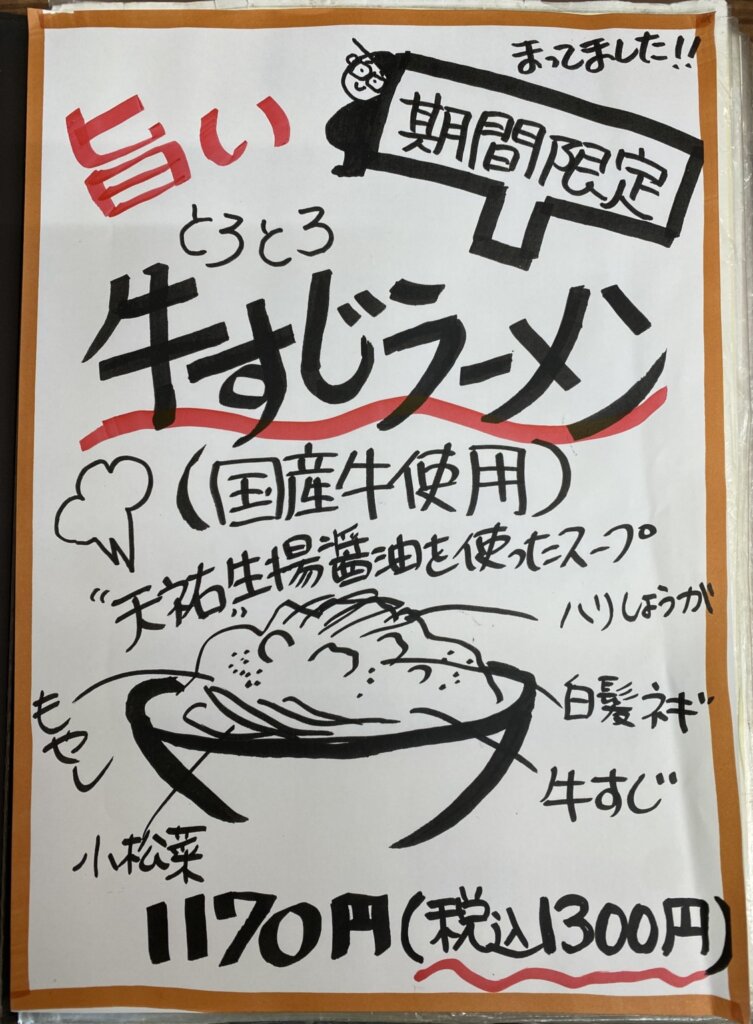 まってました!!
期間限定
旨い
とろとろ
牛すじラーメン
(国産牛使用)
"天祐"生揚醤油を使ったスープ
ハリしょうが
白髪ネギ
もやし
牛すじ
小松菜
1170円(税込1300円)